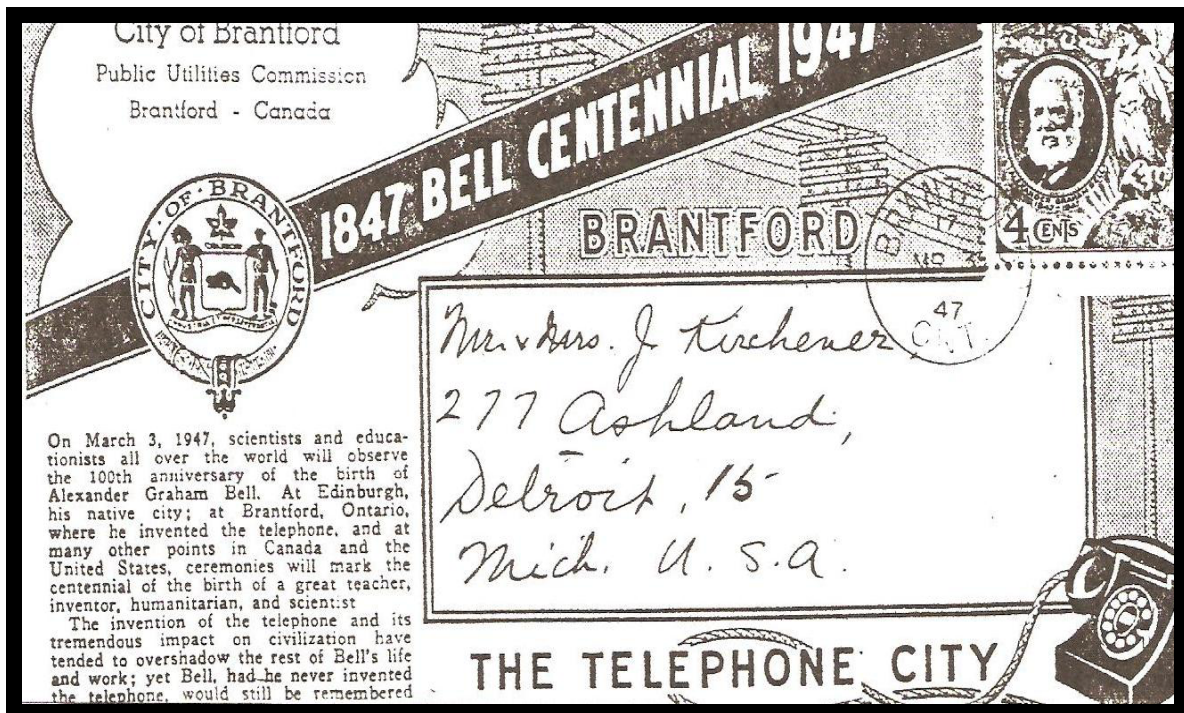 City of Brantford
Public Utilities Commission
Brantford - Canada
1847 BELL CENTENNIAL 1947
CITY · OF · BRANTFORD
BRANTFORD
4 CENTS
BRANT
17
MR 3
47
ONT.
Mr. & Mrs. J Kirchener,
277 Ashland,
Detroit, 15
Mich. U. S. A.
On March 3, 1947, scientists and educa-
tionists all over the world will observe
the 100th anniversary of the birth of
Alexander Graham Bell. At Edinburgh,
his native city; at Brantford, Ontario,
where he invented the telephone, and at
many other points in Canada and the
United States, ceremonies will mark the
centennial of the birth of a great teacher,
inventor, humanitarian, and scientist
The invention of the telephone and its
tremendous impact on civilization have
tended to overshadow the rest of Bell's life
and work; yet Bell, had he never invented
the telephone, would still be remembered
THE TELEPHONE CITY